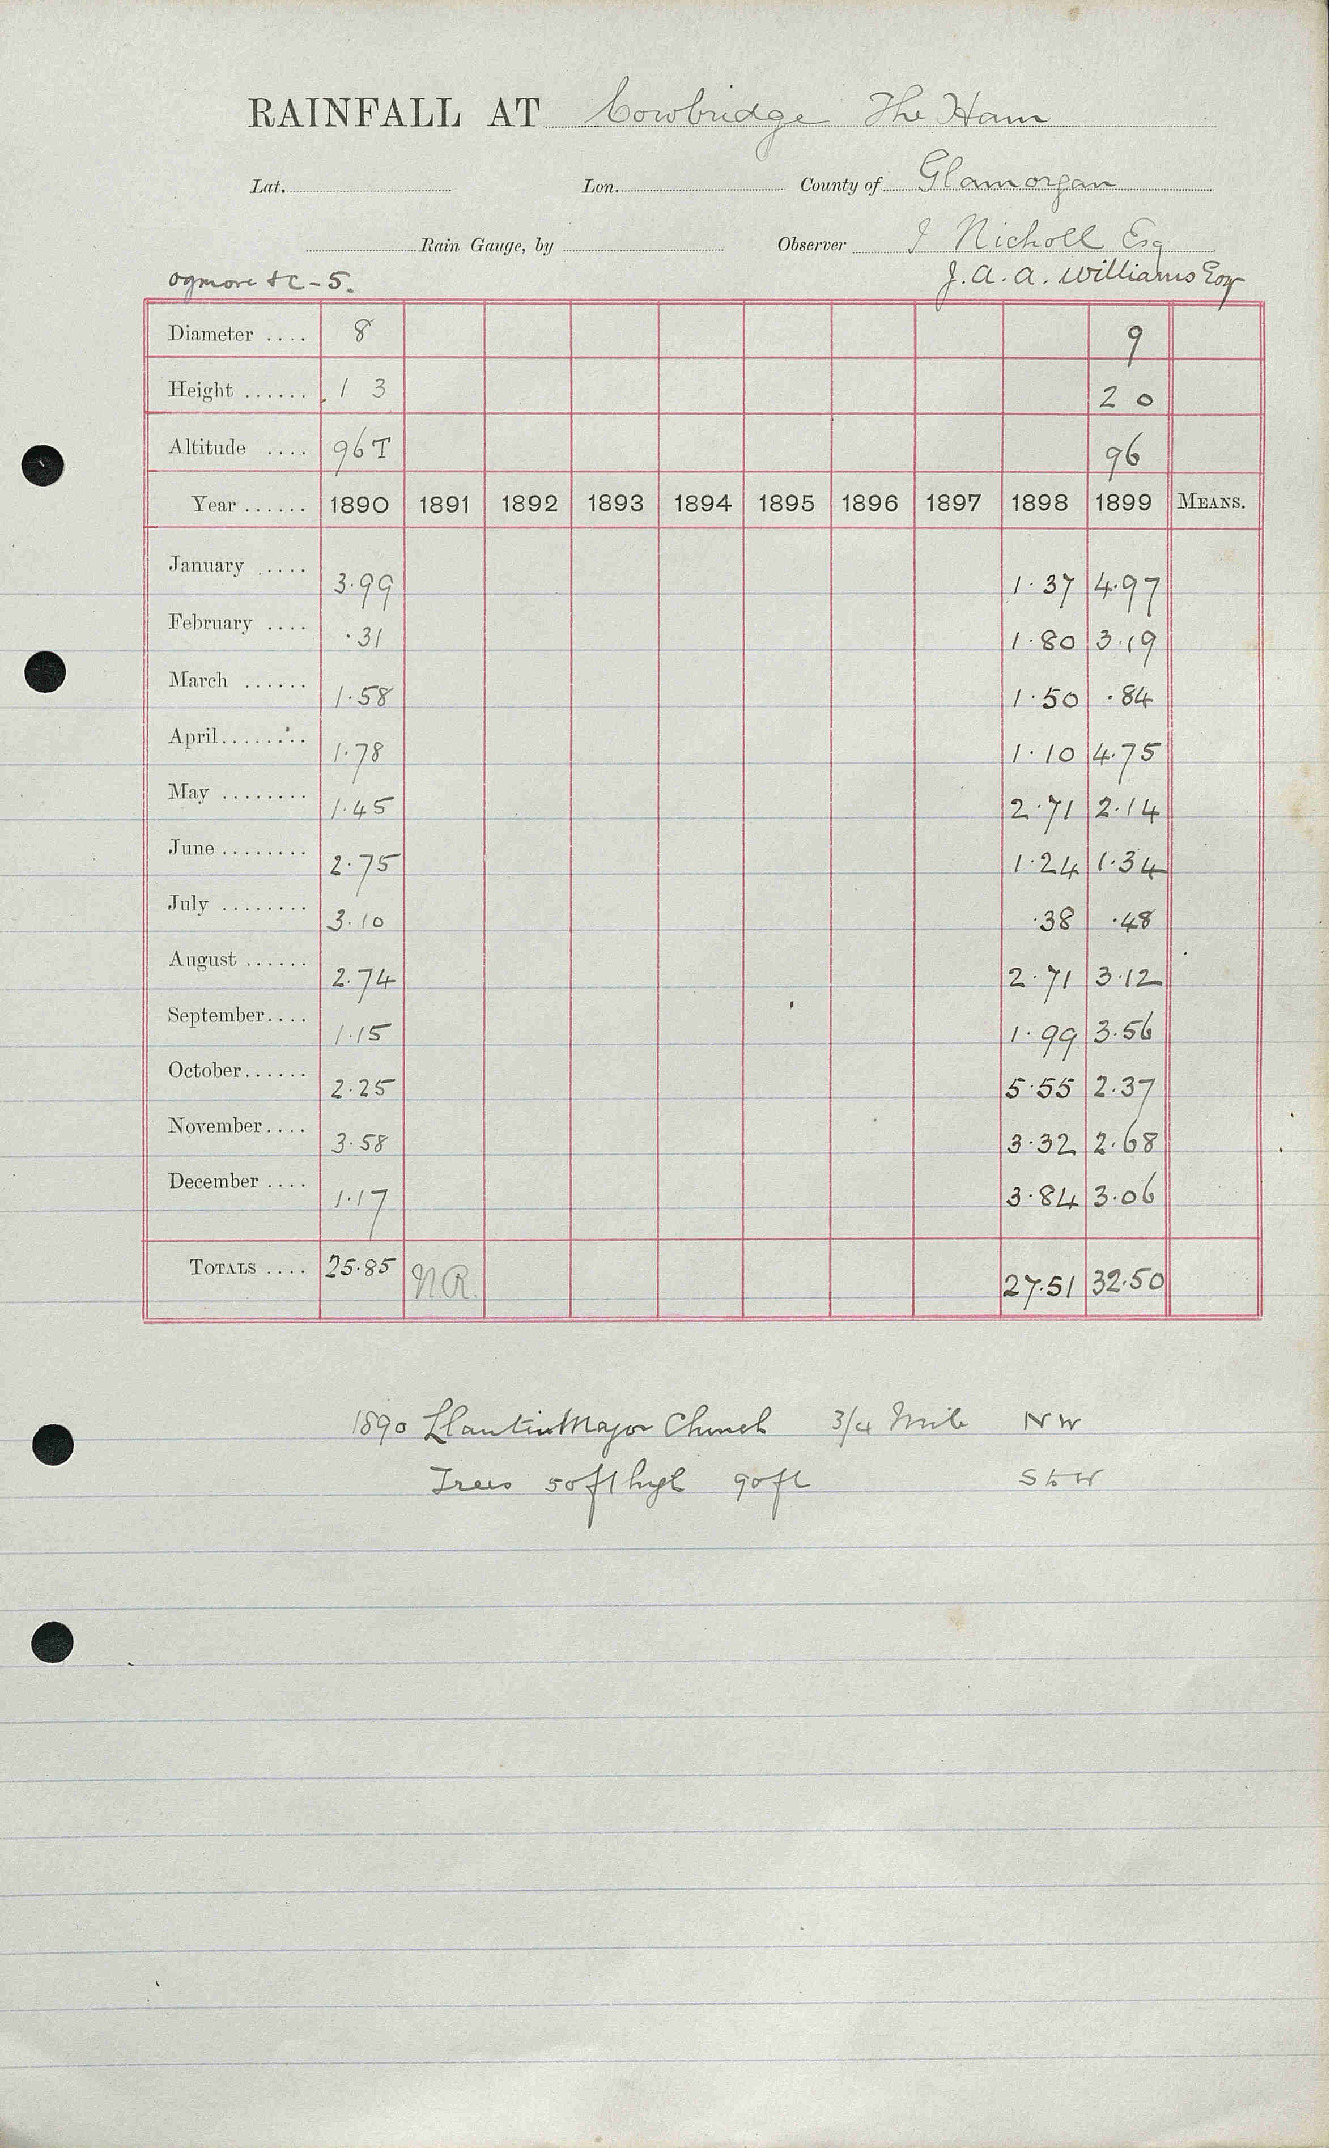 RAINFALL AT Cowbridge The Ham
Lat. Lon. County of Glamorgan
Rain Gauge, by Observer I Nicholl Esq
Ogmore &c - 5. J. A. A. Williams Esq
Diameter .... 8 9
Height ...... 1 3 2 0
Altitude .... 96T 96
Year ...... 1890 1891 1892 1893 1894 1895 1896 1897 1898 1899 MEANS.
January ..... 3.99 1.37 4.97
February .... .31 1.80 3.19
March ...... 1.58 1.50 .84
April........ 1.78 1.10 4.75
May ........ 1.45 2.71 2.14
June ........ 2.75 1.24 1.34
July ........ 3.10 .38 .48
August ...... 2.74 2.71 3.12
September.... 1.15 1.99 3.56
October...... 2.25 5.55 2.37
November.... 3.58 3.32 2.68
December .... 1.17 3.84 3.06
TOTALS .... 25.85 NR 27.51 32.50
1890 Llantwit Major Church 3/4 Mile NW
Trees 50ft high 90ft S b W